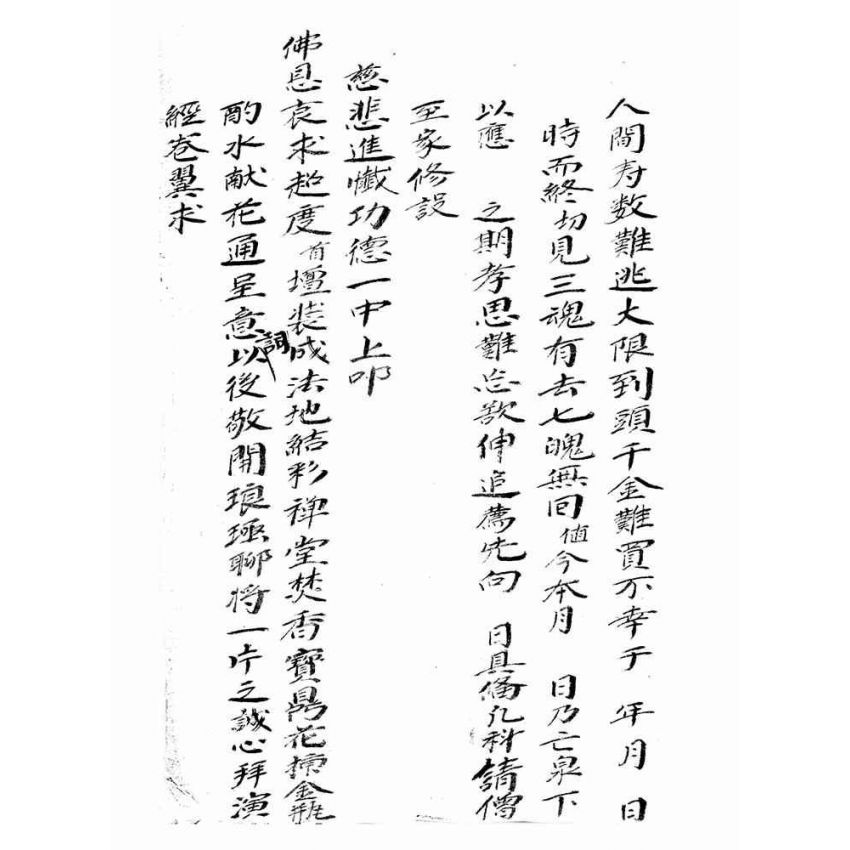 人間寿数難逃大限到頭千金難買不幸于 年月 日
時而終切見三魂有去七魄無回值今本月 日乃亡泉下
以應 之期孝思難忘欲伸追薦先向 日具備凡科請僧
至家修設
慈悲進懺功德一中上叩
佛恩哀求超度首壇裝成法地結彩禅堂焚香寶鼎花揷金瓶
酌水献花通呈意詞以後敬開琅璈聊將一片之誠心拜演
經卷翼求